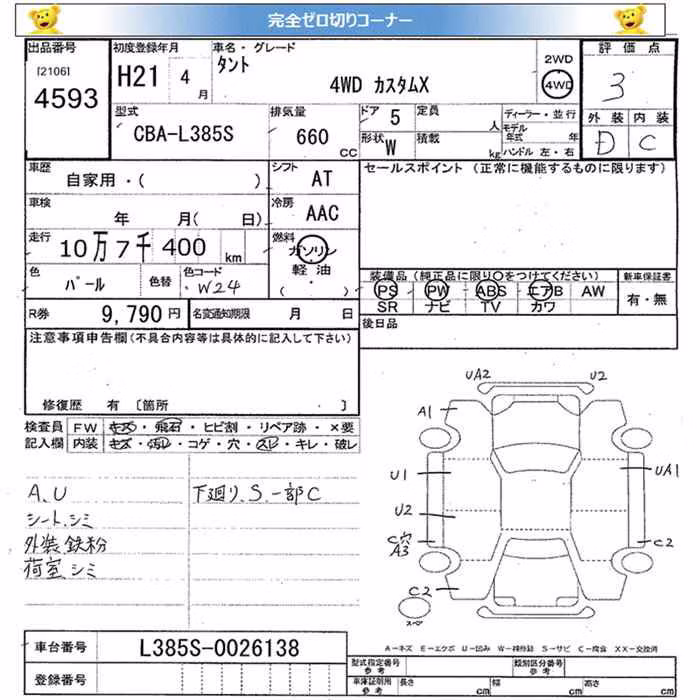 完全ゼロ切りコーナー
出品番号 初度登録年月 車名・グレード 評価点
[2106] 4593
H21 4月
タント
4WD カスタムX
2WD
4WD
3
型式 CBA-L385S
排気量 660 CC
ドア 5
定員 人
形状 W
積載 kg
ディーラー・並行
モデル年式 年
ハンドル 左・右
外装 内装
D C
車歴 自家用・( )
シフト AT
セールスポイント (正常に機能するものに限ります)
車検 年 月( 日)
冷房 AAC
走行 10万7千400 km
燃料 ガソリン
軽油
( )
色 パール 色替 色コード W24
装備品(純正品に限り○をつけてください) 新車保証書
PS PW ABS エアB AW 有・無
SR ナビ TV カワ
R券 9,790円 名変通知期限 月 日
後日品
注意事項申告欄(不具合内容等は具体的に記入して下さい)
修復歴 有 〔箇所 〕
検査員 FW キズ・飛石・ヒビ割・リペア跡・×要
記入欄 内装 キズ・汚レ・コゲ・穴・スレ・キレ・破レ
A、U 下廻り、S、一部C
シート、シミ
外装 鉄粉
荷室 シミ
UA2 U2
A1
U1 UA1
U2
C穴 C2
A3
C2
スペ
車台番号 L385S-0026138
登録番号
A-キズ E-エクボ U-凹み W-補修跡 S-サビ C-腐食 XX-交換済
型式指定番号 参考 類別区分番号 参考
車庫証明用 参考 長さ cm 幅 cm 高さ cm